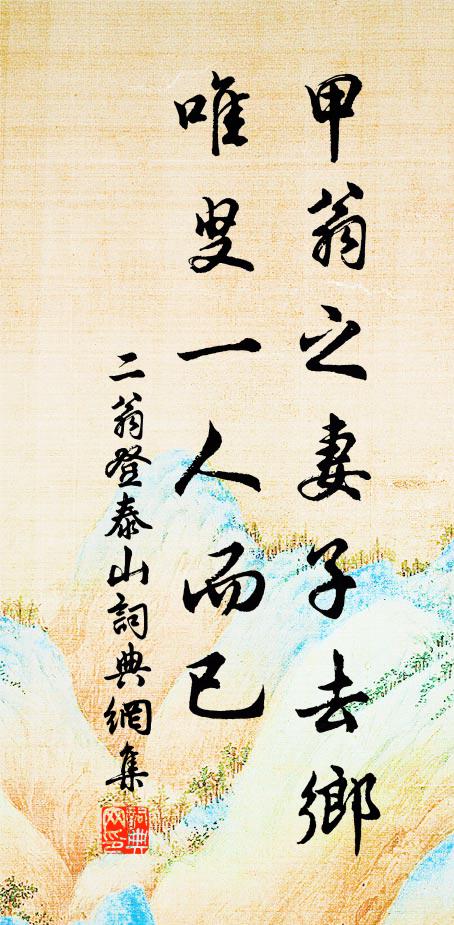 甲翁之妻子去鄉
唯叟一人而已
二翁登泰山詞典網集
詞典网印